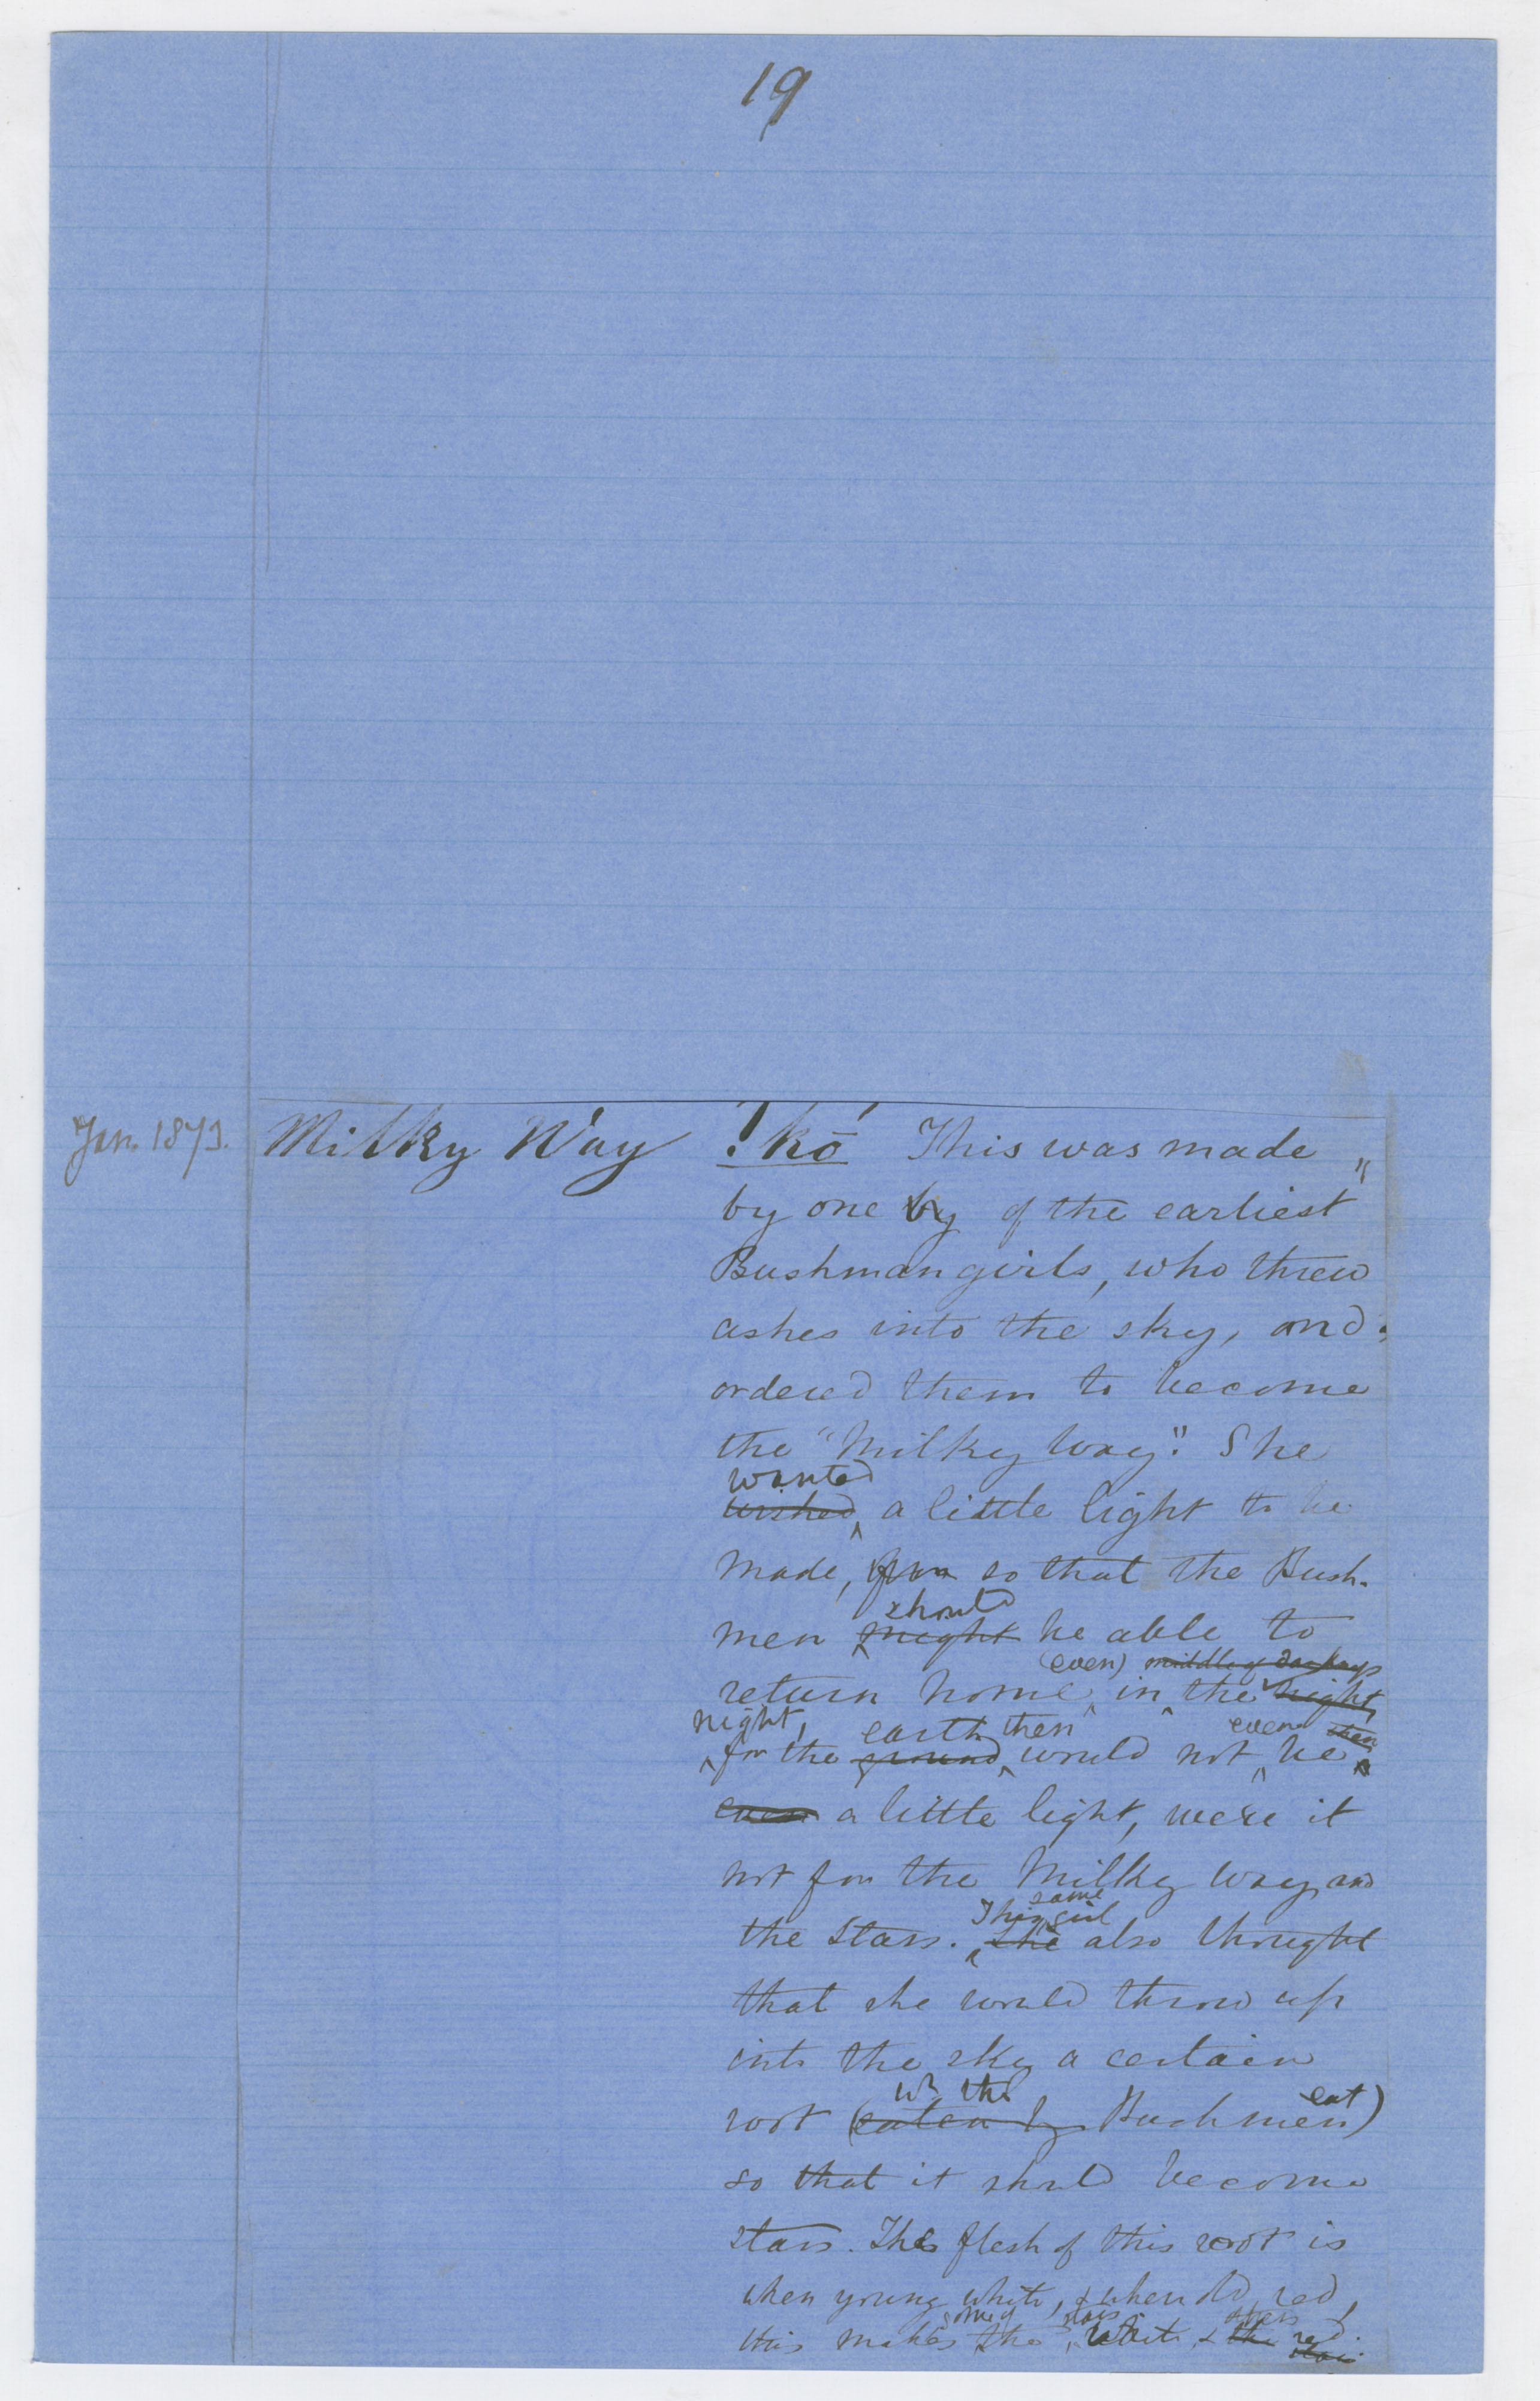 19
Jan. 1873. Milky Way !kō This was made
by one by of the earliest
Bushman girls, who threw
ashes into the sky, and
ordered them to become
the "Milky Way". She
wanted
wished a little light to be
made, for so that the Bush-
should
men might be able to
(even) middle of
return home in the night,
night, earth then even then
for the ground would not be
even a little light, were it
not for the Milky Way and
This same girl
the Stars. She also thought
that she would throw up
into the sky a certain
wh the eat
root (eaten by Bushmen)
so that it should become
stars. The flesh of this root is
when young white, & when old, red,
some of stars others
this makes the white, & the red.
stars